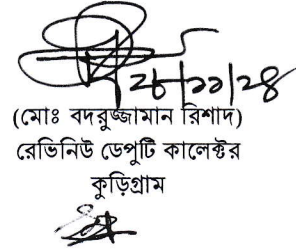 ২৮/১১/২৪
(মোঃ বদরুজ্জামান রিশাদ)
রেভিনিউ ডেপুটি কালেক্টর
কুড়িগ্রাম